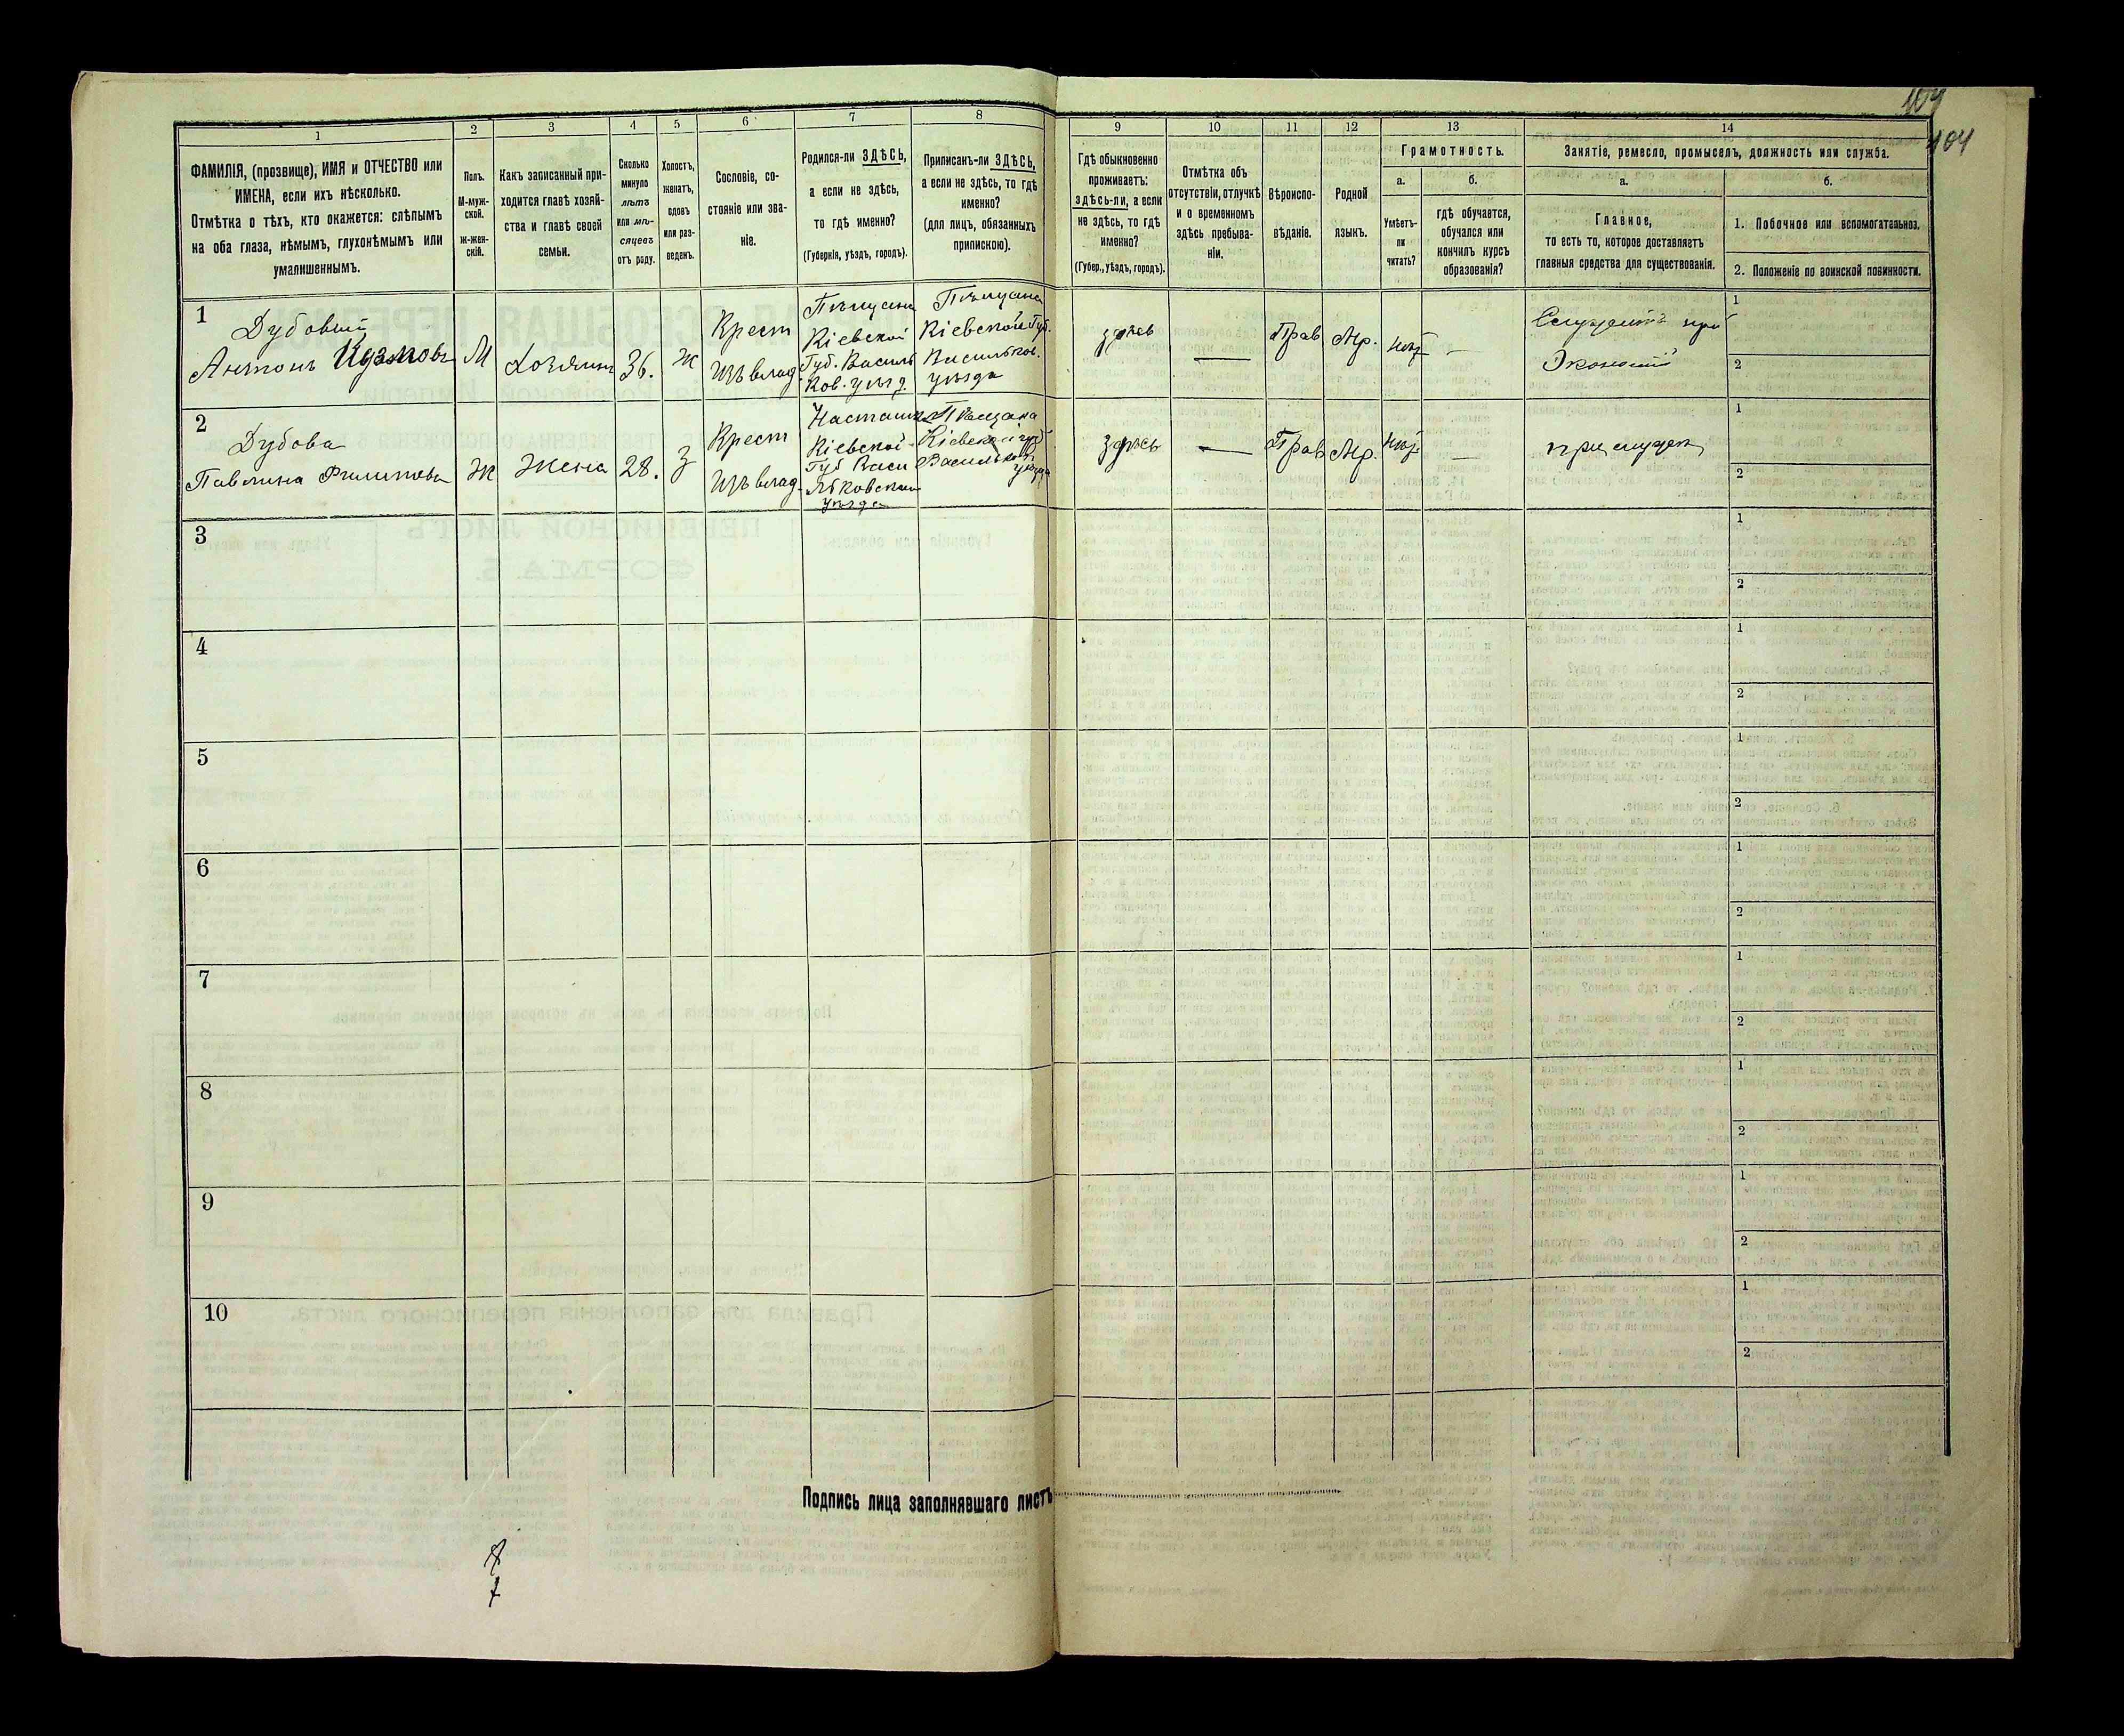 104
1 2 3 4 5 6 7 8 9 10 11 12 13 14
ФАМИЛІЯ, (прозвище), ИМЯ и ОТЧЕСТВО или
ИМЕНА, если ихъ нѣсколько.
Отмѣтка о тѣхъ, кто окажется: слѣпымъ
на оба глаза, нѣмымъ, глухонѣмымъ или
умалишеннымъ.
Полъ.
М-муж-
ской.
Ж-жен-
скій.
Какъ записанный при-
ходится главѣ хозяй-
ства и главѣ своей
семьи.
Сколько
минуло
лѣтъ
или мѣ-
сяцевъ
отъ роду.
Холостъ,
женатъ,
вдовъ
или раз-
веденъ.
Сословіе, со-
стояніе или зва-
ніе.
Родился-ли ЗДѢСЬ,
а если не здѣсь,
то гдѣ именно?
(Губернія, уѣздъ, городъ).
Приписанъ-ли ЗДѢСЬ,
а если не здѣсь, то гдѣ
именно?
(для лицъ, обязанныхъ
припискою).
Гдѣ обыкновенно
проживаетъ:
здѣсь-ли, а если
не здѣсь, то гдѣ
именно?
(Губер., уѣздъ, городъ).
Отмѣтка объ
отсутствіи, отлучкѣ
и о временномъ
здѣсь пребыва-
ніи.
Вѣроиспо-
вѣданіе.
Родной
языкъ.
Грамотность.
а.
Умѣетъ-
ли
читать?
б.
гдѣ обучается,
обучался или
кончилъ курсъ
образованія?
Занятіе, ремесло, промыселъ, должность или служба.
а.
Главное,
то есть то, которое доставляетъ
главныя средства для существованія.
б.
1. Побочное или вспомогательное.
2. Положеніе по воинской повинности.
1
Дубовый
Антонъ
М
Хозяинъ
36.
ж
Крест
Изъ влад.
Кіевской
Губ. Василь
ков. уѣзд.
Кіевской Губ.
Васильков.
уѣзда
здѣсь
—
Прав
Мр.
нѣт
—
Экономіи
1
2
2
Дубова
Павлина Филипова
Ж
Жена
28.
З
Крест
Изъ влад.
Кіевской
Губ Васи
льковском
уѣзда
Кіевской губ
Васильков
уѣзда
здѣсь
—
Прав
Мр.
нѣт
—
при мужѣ
1
2
3
1
2
4
1
2
5
1
2
6
1
2
7
1
2
8
1
2
9
1
2
10
1
2
Подпись лица заполнявшаго листъ